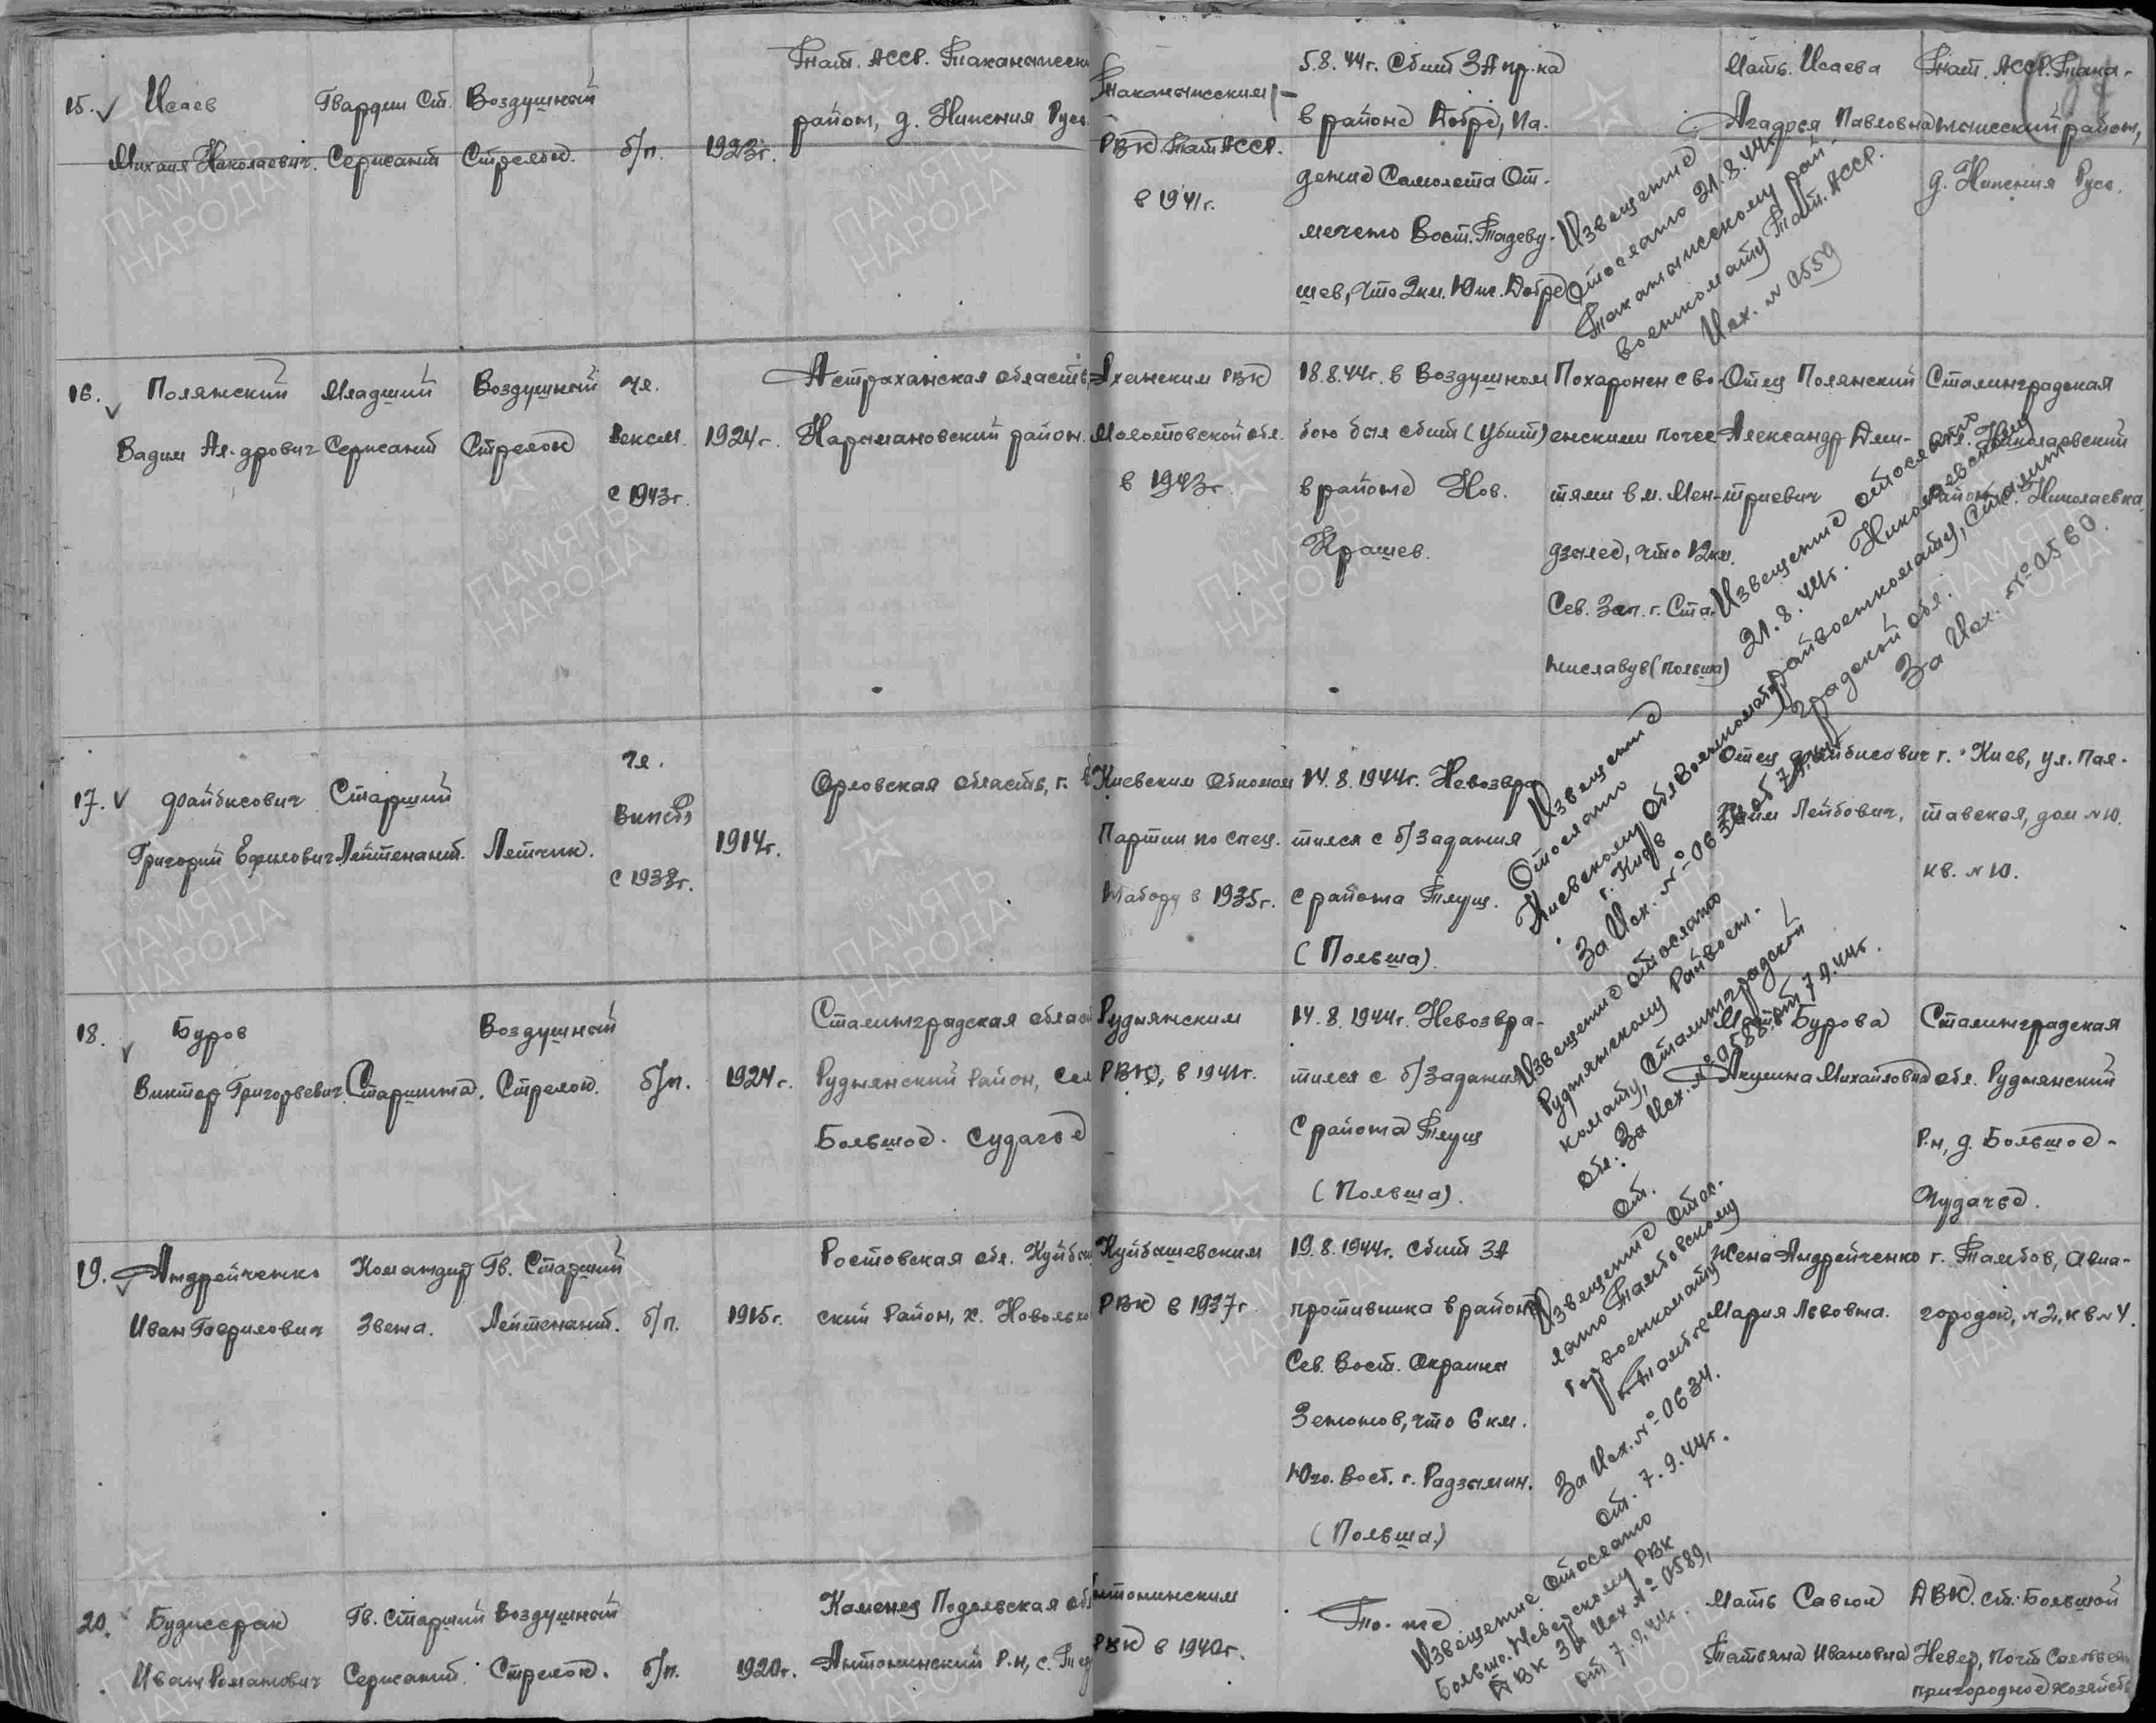 15. Исаев
Михаил Николаевич.
Гвардии Ст.
Сержант
Воздушный
Стрелок
б/п.
1923г.
Тат. АССР.
район, д. Нижния Русс.
РВК Тат АССР.
в 1941г.
5.8.44г. Сбит ЗА пр-ка
в районе Добре, Па-
дение Самолета От-
мечено Вост. Тадеву-
шев, что 2км. Юж. Добре
Извещение
Отослано 21.8.44г
военкомату Тат. АССР.
Исх. № 0559
Мать. Исаева
Павловна
Тат. АССР. Така-
нышский район,
д. Нижния Русс.
16. Полянский
Вадим Ал-дрович
Младший
Сержант
Воздушный
Стрелок
чл.
Вексм.
с 1943г.
1924г.
Астраханская область,
Наримановский район.
РВК
Молотовской обл.
в 1943г.
18.8.44г. в Воздушном
бою был сбит (убит)
в районе Нов.
Крашев.
Похоронен с во-
енскими почес
тями в м. Мен-
дзылес, что 12км.
Сев. Зап. г. Ста-
ниславув (Польша)
Отец Полянский
Александр Дми-
триевич
Извещение отослано
21.8.44г. Николаевскому
райвоенкомату, Сталин-
градской обл.
За Исх. № 0560.
Сталинградская
обл. Николаевский
район, с. Николаевка
17. Файбисович
Григорий Ефимович
Старший
Лейтенант.
Летчик.
чл.
ВКП(б)
с 1938г.
1914г.
Орловская область, г.
Киевским Обкомом
Партии по спец.
Набору в 1935г.
14.8.1944г. Невозвра
тился с б/задания
с района Тлущ.
(Польша).
Извещение
Отослано
Киевскому Облвоенкомату
г. Киев
За Исх. №
Отец Файбисович
Лейбович,
г. Киев, ул. Пол-
тавская, дом №10.
кв. №10.
18. Буров
Виктор Григорьевич.
Старшина.
Воздушный
Стрелок.
б/п.
1924г.
Сталинградская облас
Руднянский Район, сел
Большое. Судачье
Руднянским
РВК, в 1941г.
14.8.1944г. Невозвра-
тился с б/задания
С района Тлущ
(Польша).
Извещение отослано
Руднянскому Райвоен-
комату, Сталинградской
обл. За Исх. № 0588 от 7.9.44г.
Мать Бурова
Акулина Михайловна
Сталинградская
обл. Руднянский
Р-н, д. Большое-
Чудачье.
19. Андрейченко
Иван Гаврилович
Командир
Звена.
Гв. Старший
Лейтенант.
б/п.
1915г.
Ростовская обл. Куйбыш
ский Район, х.
Куйбышевским
РВК в 1937г
19.8.1944г. Сбит ЗА
противника в районе
Сев. Вост. Окраина
что 6 км.
Юго. Вост. г. Радзымин.
(Польша.)
Извещение отос-
лано Тамбовскому
Горвоенкомату
г. Тамбов
За Исх. № 0634.
От. 7.9.44г.
Жена Андрейченко
Мария Львовна.
г. Тамбов, Авиа-
городок, №2, кв №4.
20.
Иван Романович
Гв. Старший
Сержант.
Воздушный
Стрелок.
б/п.
1920г.
Каменец Подольская об
Антонинский Р-н, с.
Антонинским
РВК в 1940г.
То-же
Извещение отослано
Больше-Неверскому РВК
ДВК За Исх № 0589,
от 7.9.44г.
Мать Савюк
Татьяна Ивановна
ДВК. ст. Большой
Невер, Почт
пригородное хозяйств